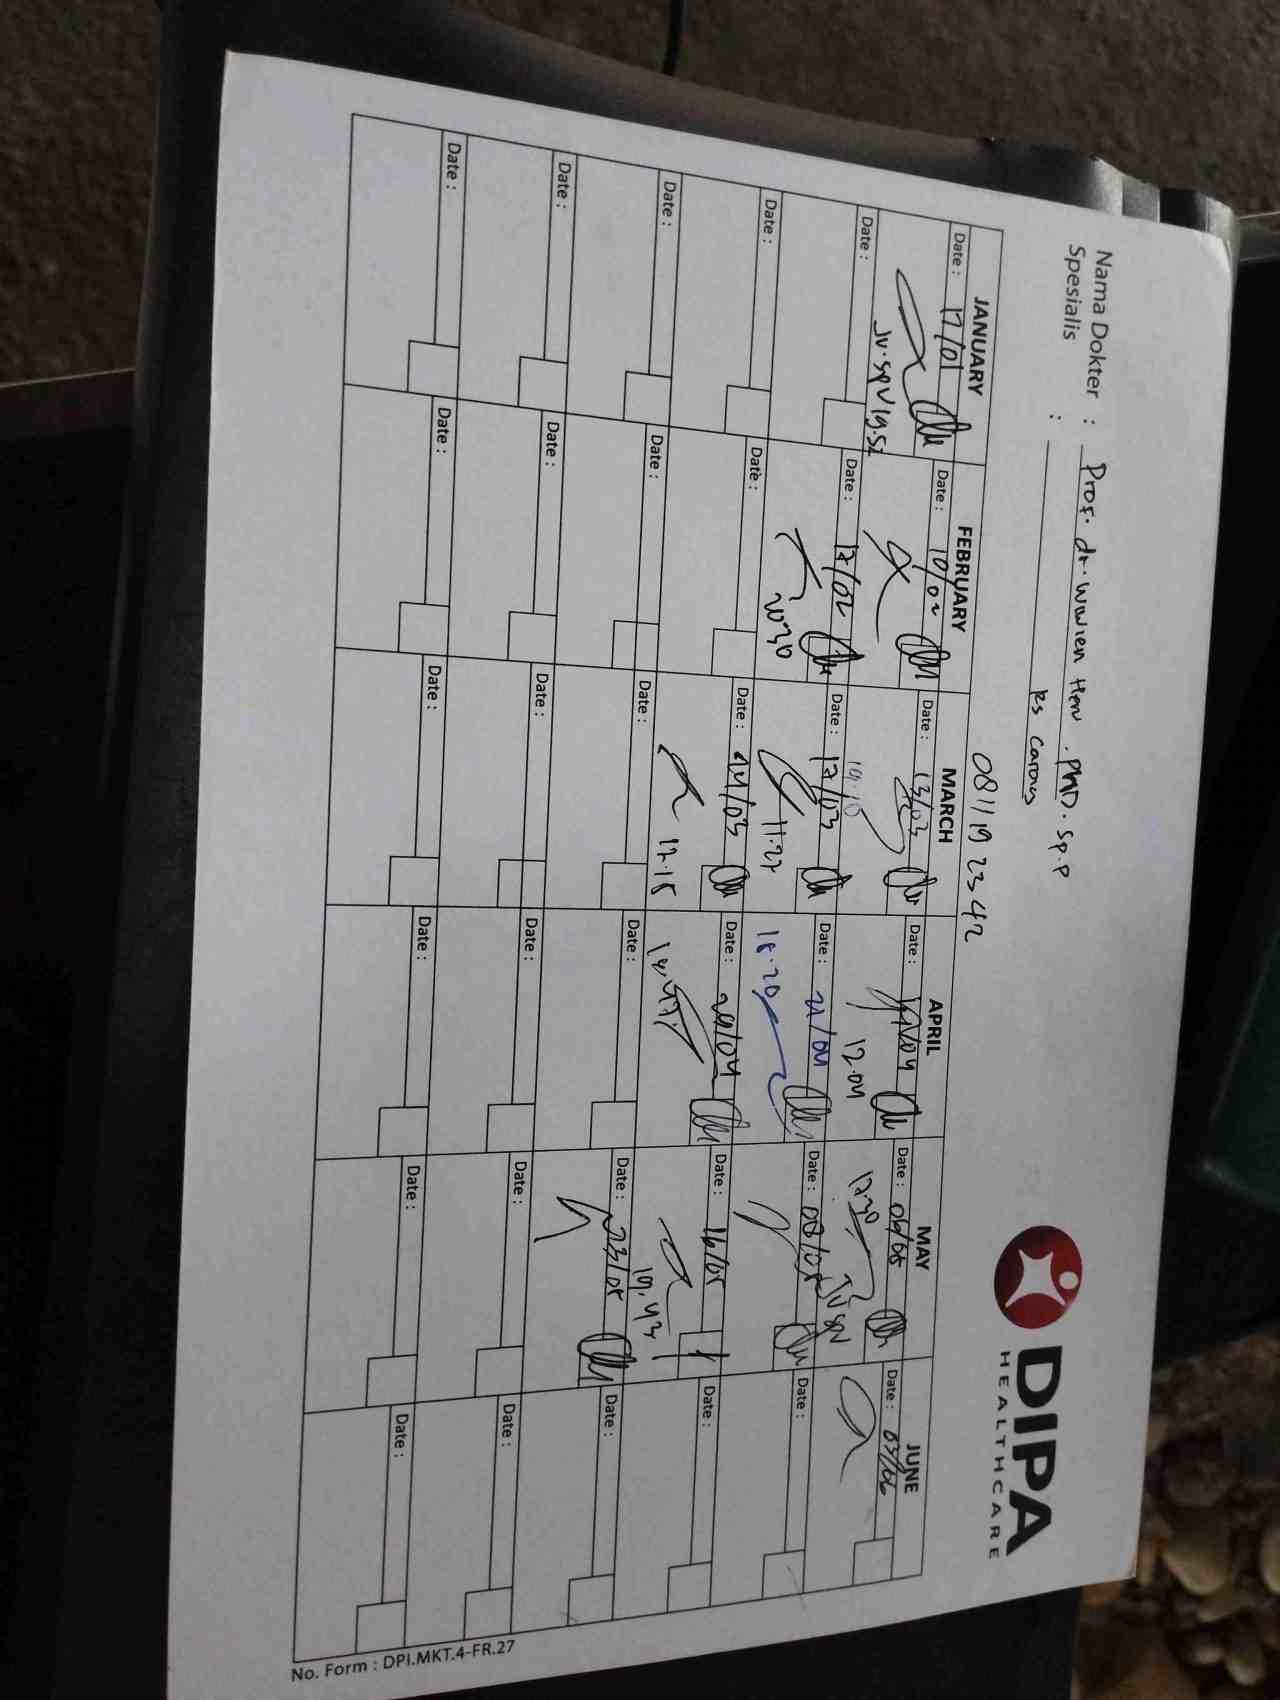 DIPA
HEALTHCARE
Nama Dokter : Prof. dr. Wiwien Heru . PhD. Sp.P
Spesialis :
RS Carolus
0811192342
JANUARY FEBRUARY MARCH APRIL MAY JUNE
Date : 17/01 Date : 10/02 Date : 13/03 Date : Date : 06/05 Date : 03/06
19.10 12.04 17.30
Date : Date : 17/02 Date : 17/03 Date : 21/04 Date : 08/05 Date :
20.30 11.27 18.20
Date : Date : Date : 24/03 Date : 29/04 Date : 16/05 Date :
12.15 19.43
Date : Date : Date : Date : Date : 23/05 Date :
Date : Date : Date : Date : Date : Date :
Date : Date : Date : Date : Date : Date :
No. Form : DPI.MKT.4-FR.27